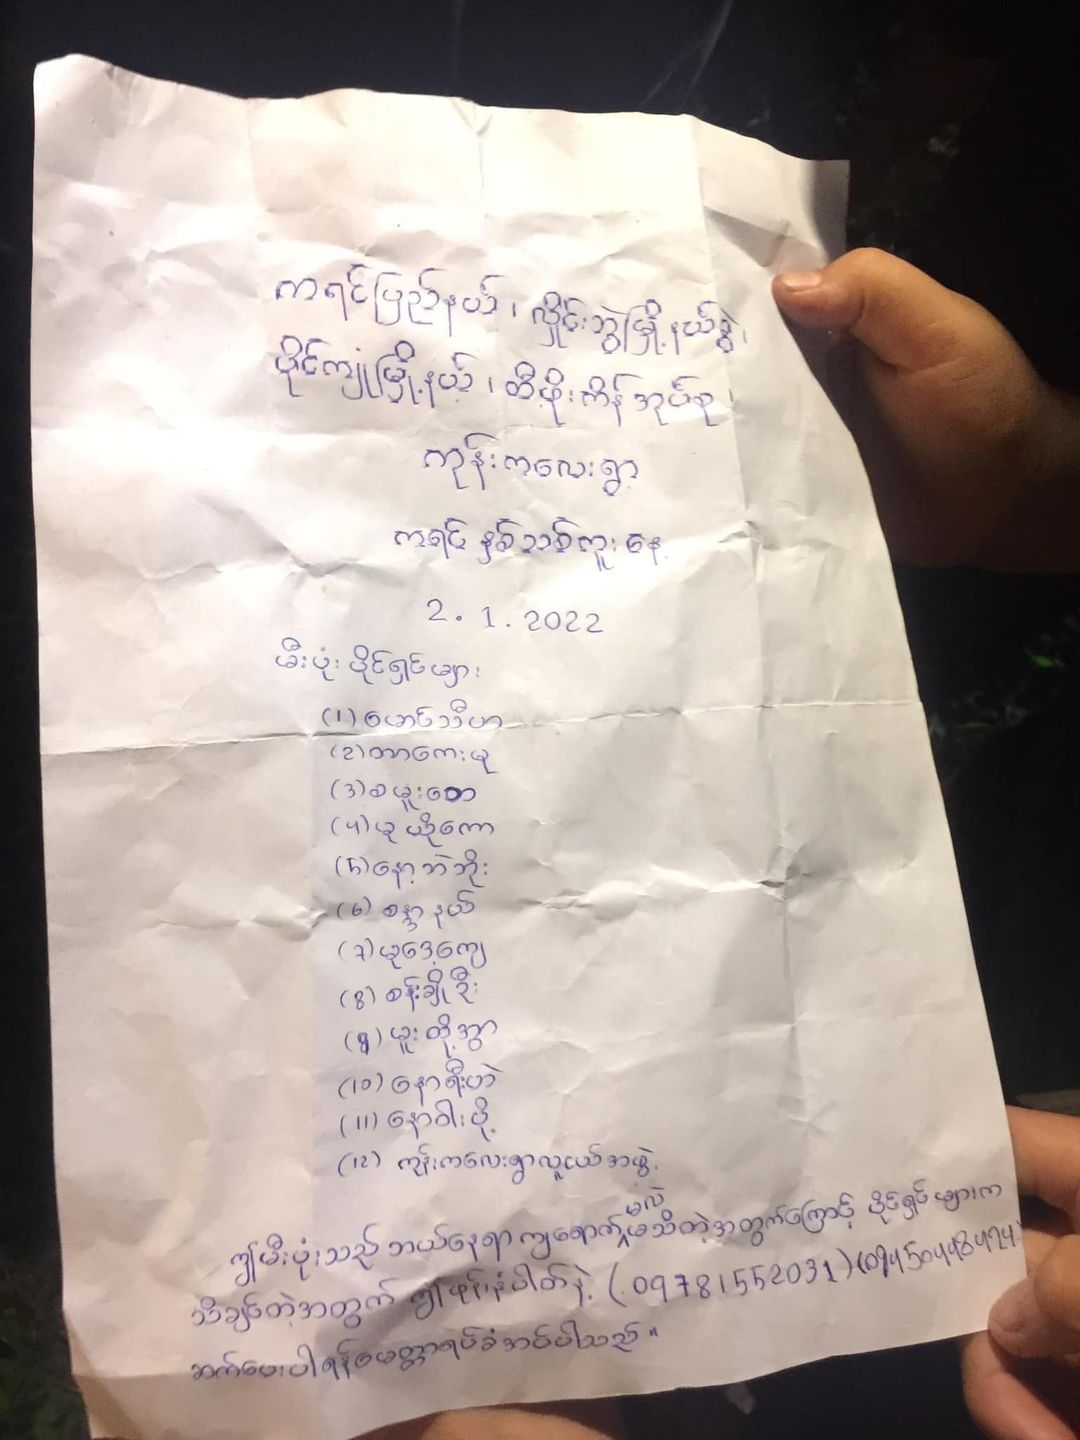 ကရင်ပြည်နယ်၊ လှိုင်းဘွဲ့မြို့နယ်ခွဲ၊
ပိုင်ကျုံမြို့နယ်၊ ထီဖိုးကိန်အုပ်စု၊
ကုန်းကလေးရွာ
ကရင် နှစ်သစ်ကူးနေ့
2.1.2022
မီးပုံး ပိုင်ရှင်များ
(1) မောင်သီဟ
(2) တာကေးမူ
(3) စမူးထော
(4) မူယိုကော
(5) နော့ဘဲဘိုး
(6) စန္ဒာနယ်
(7) မူဒေ့ကျေ
(8) စန်းချိုဦး
(9) မူးထို့အွာ
(10) နောရီးဟဲ
(11) နောဝါးပို့
(12) ကုန်းကလေးရွာလူငယ်အဖွဲ့
ဤမီးပုံးသည် ဘယ်နေရာကျရောက်မှန်းမလဲမသိတဲ့အတွက်ကြောင့် ပိုင်ရှင်များက
သိချင်တဲ့အတွက် ဤဖုန်းနံပါတ်နဲ့ (09781552031) (09450448424)
ဆက်ပေးပါရန်မေတ္တာရပ်ခံအပ်ပါသည်"